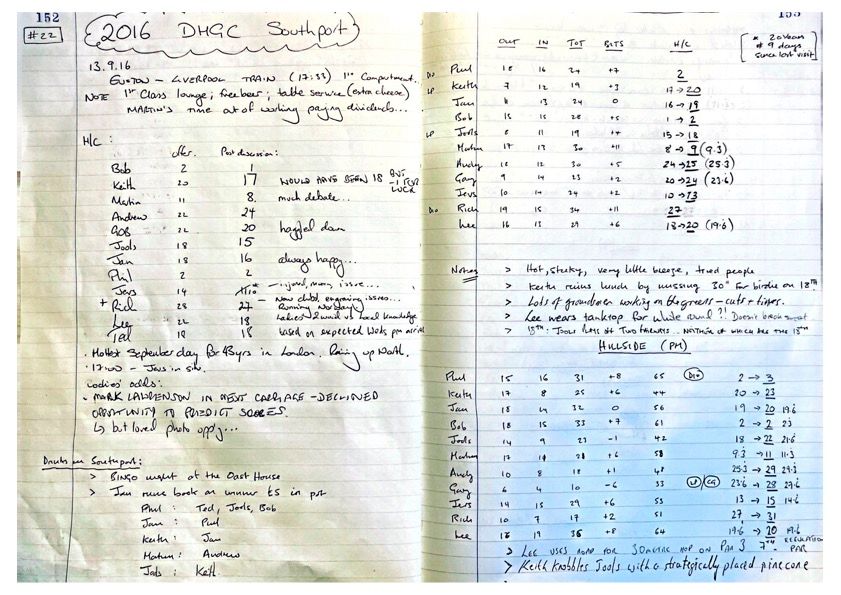 152
#22
2016 DHGC Southport
13.9.16
EUSTON – LIVERPOOL TRAIN (17:33) 1st Compartment.
NOTE 1st Class lounge; free beer; table service (extra cheese)
MARTIN'S time out of working paying dividends...
H/C :
offer. Post discussion:
Bob 2 1
Keith 20 17 WOULD HAVE BEEN 18 BUT -1 FOR LUCK
Martin 11 8. much debate...
Andrew 22 24
GOB 22 20 haggled down
Jools 18 15
Jan 18 16 always happy...
Phil 2 2
Jevs 14 injury, money issue...
+ Rich 28 27 New clubs, engraving issues...
Lee 22 18 Ladies 2 wind vs Local knowledge
Ted 18 18 based on expected pm arrival
. Hottest September day for 45yrs in London. up North.
. 17:00 – Jevs in
Ladies' odds:
. MARK LAWRENSON IN NEXT CARRIAGE – DECLINED
OPPORTUNITY TO PREDICT SCORES.
↳ but loved photo oppy...
Drinks in Southport:
> BINGO night at the Oast House
> Jan book on winner £5 in pot
Phil : Ted, Jools, Bob
Jan : Paul
Keith : Jan
Martin : Andrew
Jools : Keith
OUT IN TOT BITS H/C
* 20 years # 9 days since last visit
Phil 18 16 +7 2
Keith 7 12 19 +3 17 → 20
Jan 11 13 24 0 16 → 19
Bob 15 28 +5 1 → 2
Jools 8 11 19 +4 15 → 18
Martin 17 13 30 +11 8 → 9 (9.3)
Andy 18 12 30 +5 24 → 25 (25.3)
Gary 9 14 23 +2 20 → 24 (23.6)
Jevs 10 14 24 +2 10 → 13
Rich 19 15 34 +11 27
Lee 16 13 29 +6 18 → 20 (19.6)
Notes > Hot, sticky, very little breeze, tired people
> Keith ruins lunch by missing 30" for birdie on 18TH
> Lots of groundsmen working on the greens – cuts + tines.
> Lee wears tanktop for whole round ?! Doesn't break sweat
> 15TH: JOOLS HITS OF TWO FAIRWAYS.. NEITHER OF WHICH ARE THE 15TH
HILLSIDE (PM)
Phil 15 16 31 +8 65 2 → 3
Keith 17 8 25 +6 44 20 → 23
Jan 18 14 32 0 56 19 → 20 19.6
Bob 18 15 33 +7 61 2 → 2 2.3
Jools 14 9 23 -1 42 18 → 22 21.6
Martin 17 11 28 +6 58 9.3 → 11 11.3
Andy 10 8 18 +1 48 25.3 → 29 29.3
Gary 6 4 10 -6 33 23.6 → 28 27.6
Jevs 14 15 29 +6 53 13 → 15 14.6
Rich 10 7 17 +2 51 27 → 31
Lee 16 19 35 +8 64 19.6 → 20 19.6
> Lee uses road for 30 metre hop on PAR 3 7TH. REGULATION PAR
> Keith knobbles Jools with a strategically placed pinecone